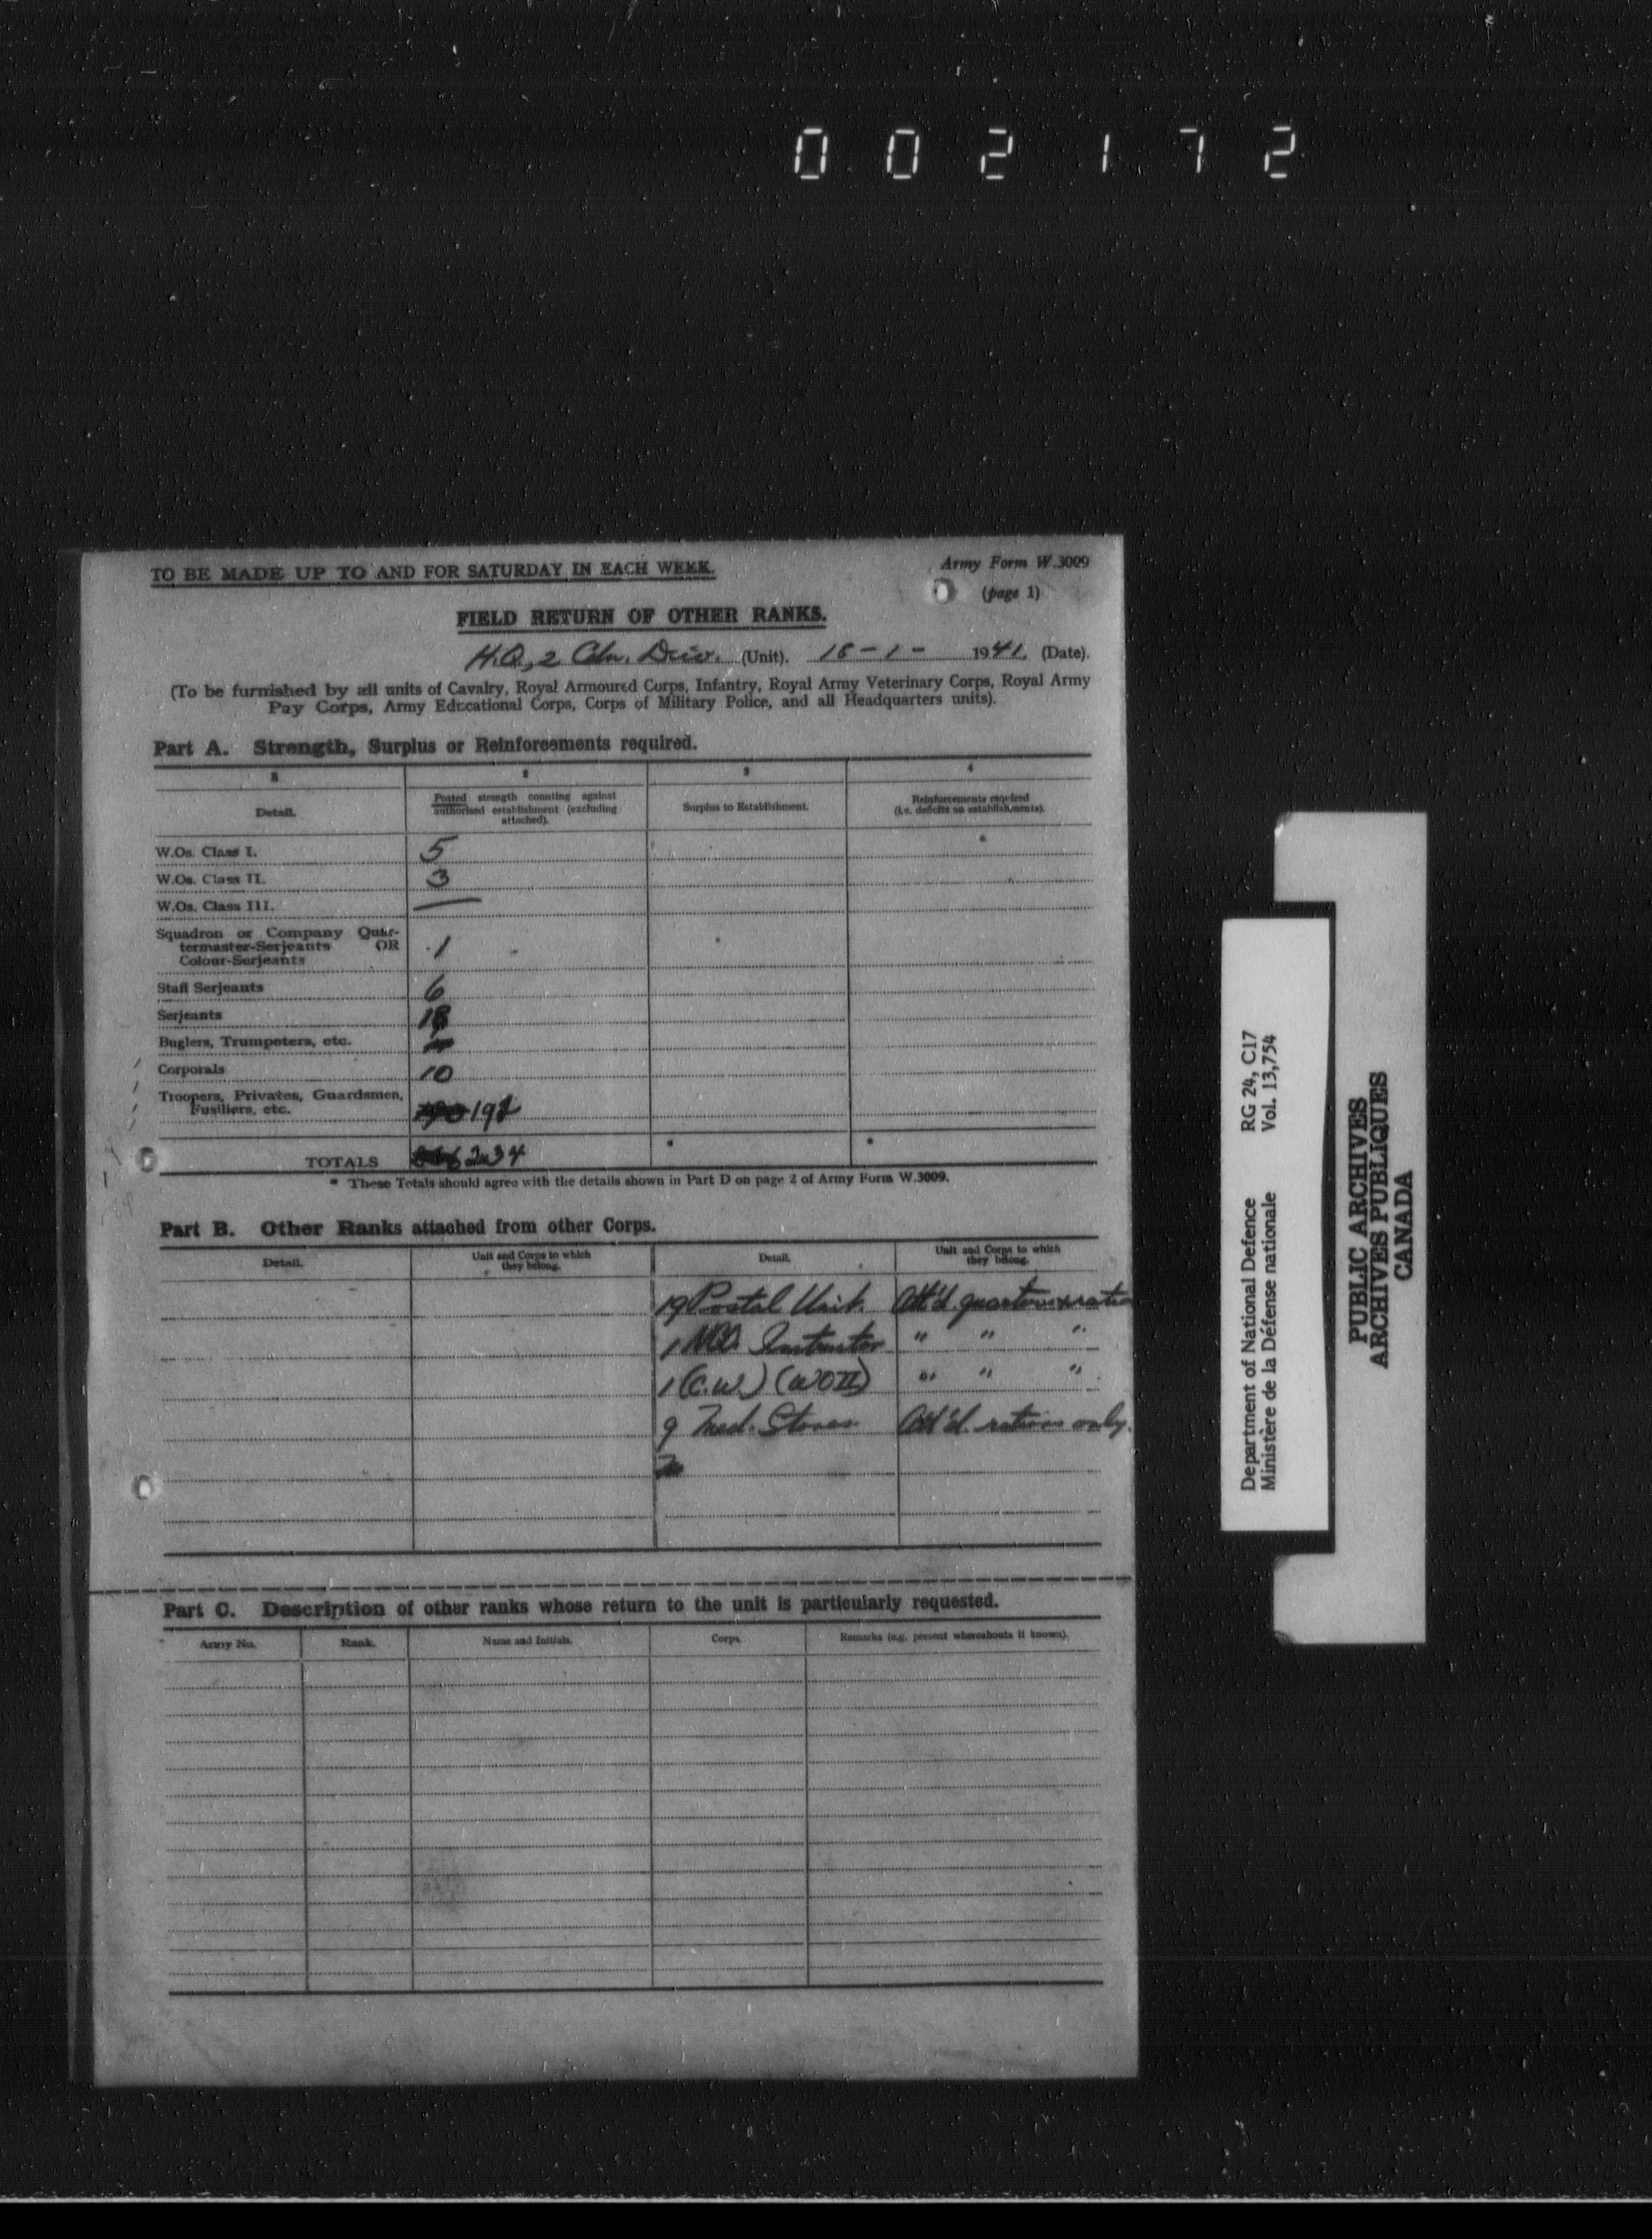 002172
TO BE MADE UP TO AND FOR SATURDAY IN EACH WEEK.
Army Form W.3009
(page 1)
FIELD RETURN OF OTHER RANKS.
H.Q., 2 Cdn. Div. (Unit). 18-1- 1941 (Date).
(To be furnished by all units of Cavalry, Royal Armoured Corps, Infantry, Royal Army Veterinary Corps, Royal Army
Pay Corps, Army Educational Corps, Corps of Military Police, and all Headquarters units).
Part A. Strength, Surplus or Reinforcements required.
1 2 3 4
Detail.
Posted strength counting against
authorised establishment (excluding
attached).
Surplus to Establishment.
Reinforcements required
(i.e. deficits on establishments).
W.Os. Class I. 5
W.Os. Class II. 3
W.Os. Class III. —
Squadron or Company Quar-
termaster-Serjeants OR
Colour-Serjeants 1
Staff Serjeants 6
Serjeants 18
Buglers, Trumpeters, etc.
Corporals 10
Troopers, Privates, Guardsmen,
Fusiliers, etc. 191
TOTALS 234
* These Totals should agree with the details shown in Part D on page 2 of Army Form W.3009.
Part B. Other Ranks attached from other Corps.
Detail.
Unit and Corps to which
they belong.
Detail.
Unit and Corps to which
they belong.
19 Postal Unit. Att'd quarters & ratio
1 Instructor " " "
1 (C.W.) (WOII) " " "
9 Med. Stores Att'd. rations only.
Part C. Description of other ranks whose return to the unit is particularly requested.
Army No. Rank. Name and Initials. Corps. Remarks (e.g. present whereabouts if known).
Department of National Defence RG 24, C17
Ministère de la Défense nationale Vol. 13,754
PUBLIC ARCHIVES
ARCHIVES PUBLIQUES
CANADA